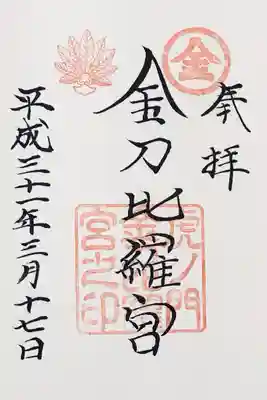 奉拝
金
金刀比羅宮
虎ノ門
金刀比羅
宮之印
平成三十一年三月十七日